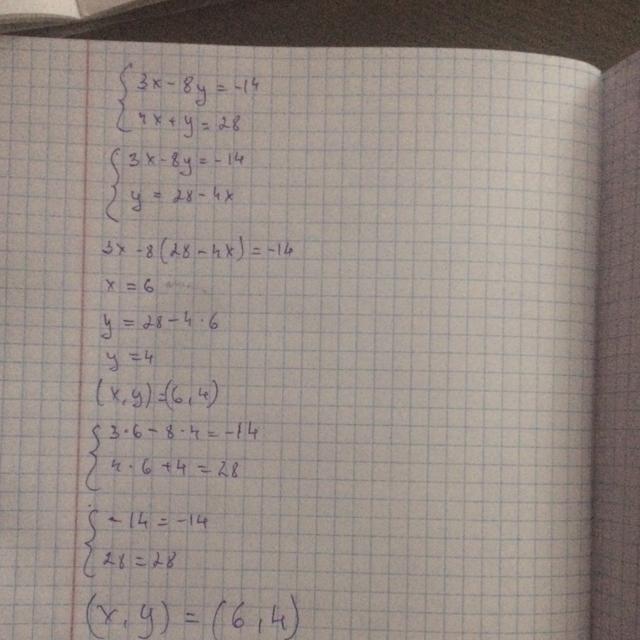 {3x-8y=-14
{4x+y=28
{3x-8y=-14
{y=28-4x
3x-8(28-4x)=-14
x=6
y=28-4·6
y=4
(x,y)=(6,4)
{3·6-8·4=-14
{4·6+4=28
{-14=-14
{28=28
(x,y)=(6,4)